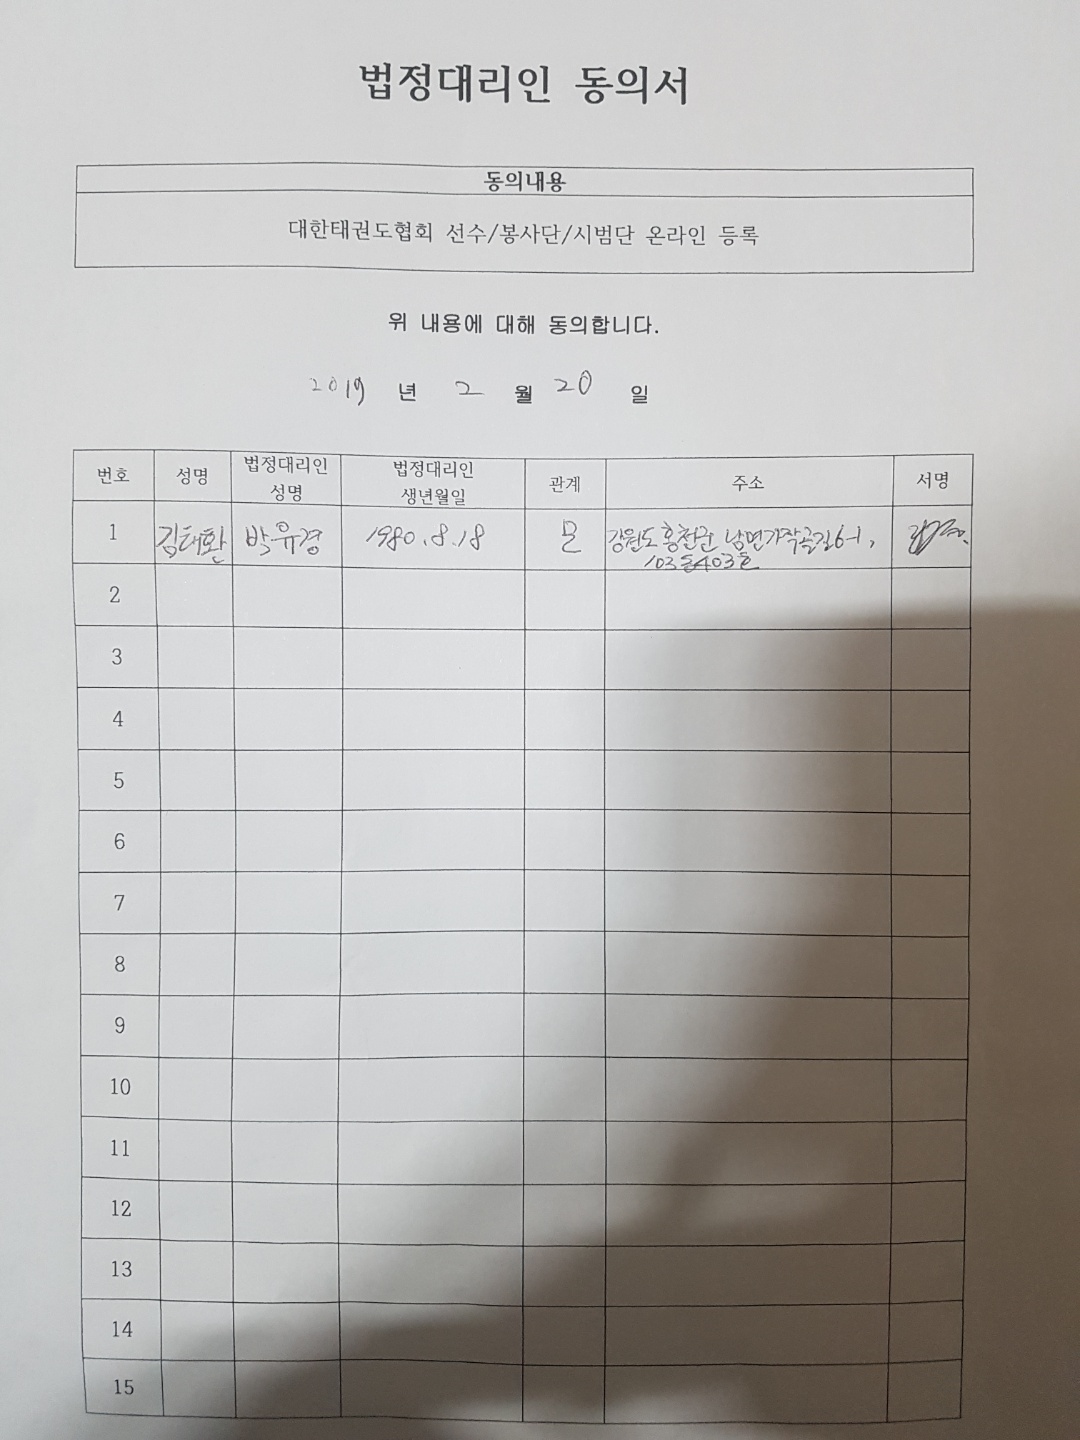 법정대리인 동의서
동의내용
대한태권도협회 선수/봉사단/시범단 온라인 등록
위 내용에 대해 동의합니다.
2019 년 2 월 20 일
번호 성명 법정대리인 성명 법정대리인 생년월일 관계 주소 서명
1 김태환 박유경 1980.8.18 모 강원도 홍천군 남면가작골길6-1,
103동403호
2
3
4
5
6
7
8
9
10
11
12
13
14
15